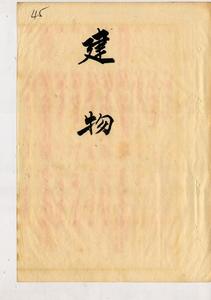 45
建物